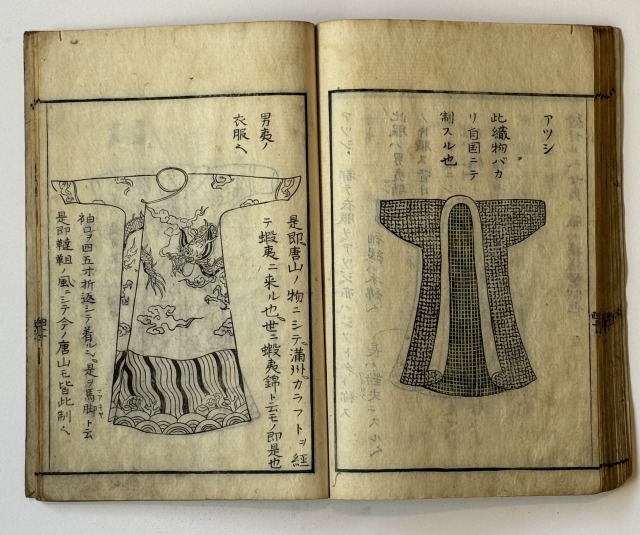 アツシ
此織物バカ
リ自国ニテ
制スル也
男夷ノ
衣服
是即唐山ノ物ニシテ満州カラフトヲ経
テ蝦夷ニ来ル也世ニ蝦夷錦ト云モノ即是也
袖口ヲ四五寸折返シテ着ル是ヲ馬脚ト云
是即韃靼ノ風ニシテ今ノ唐山モ皆此制